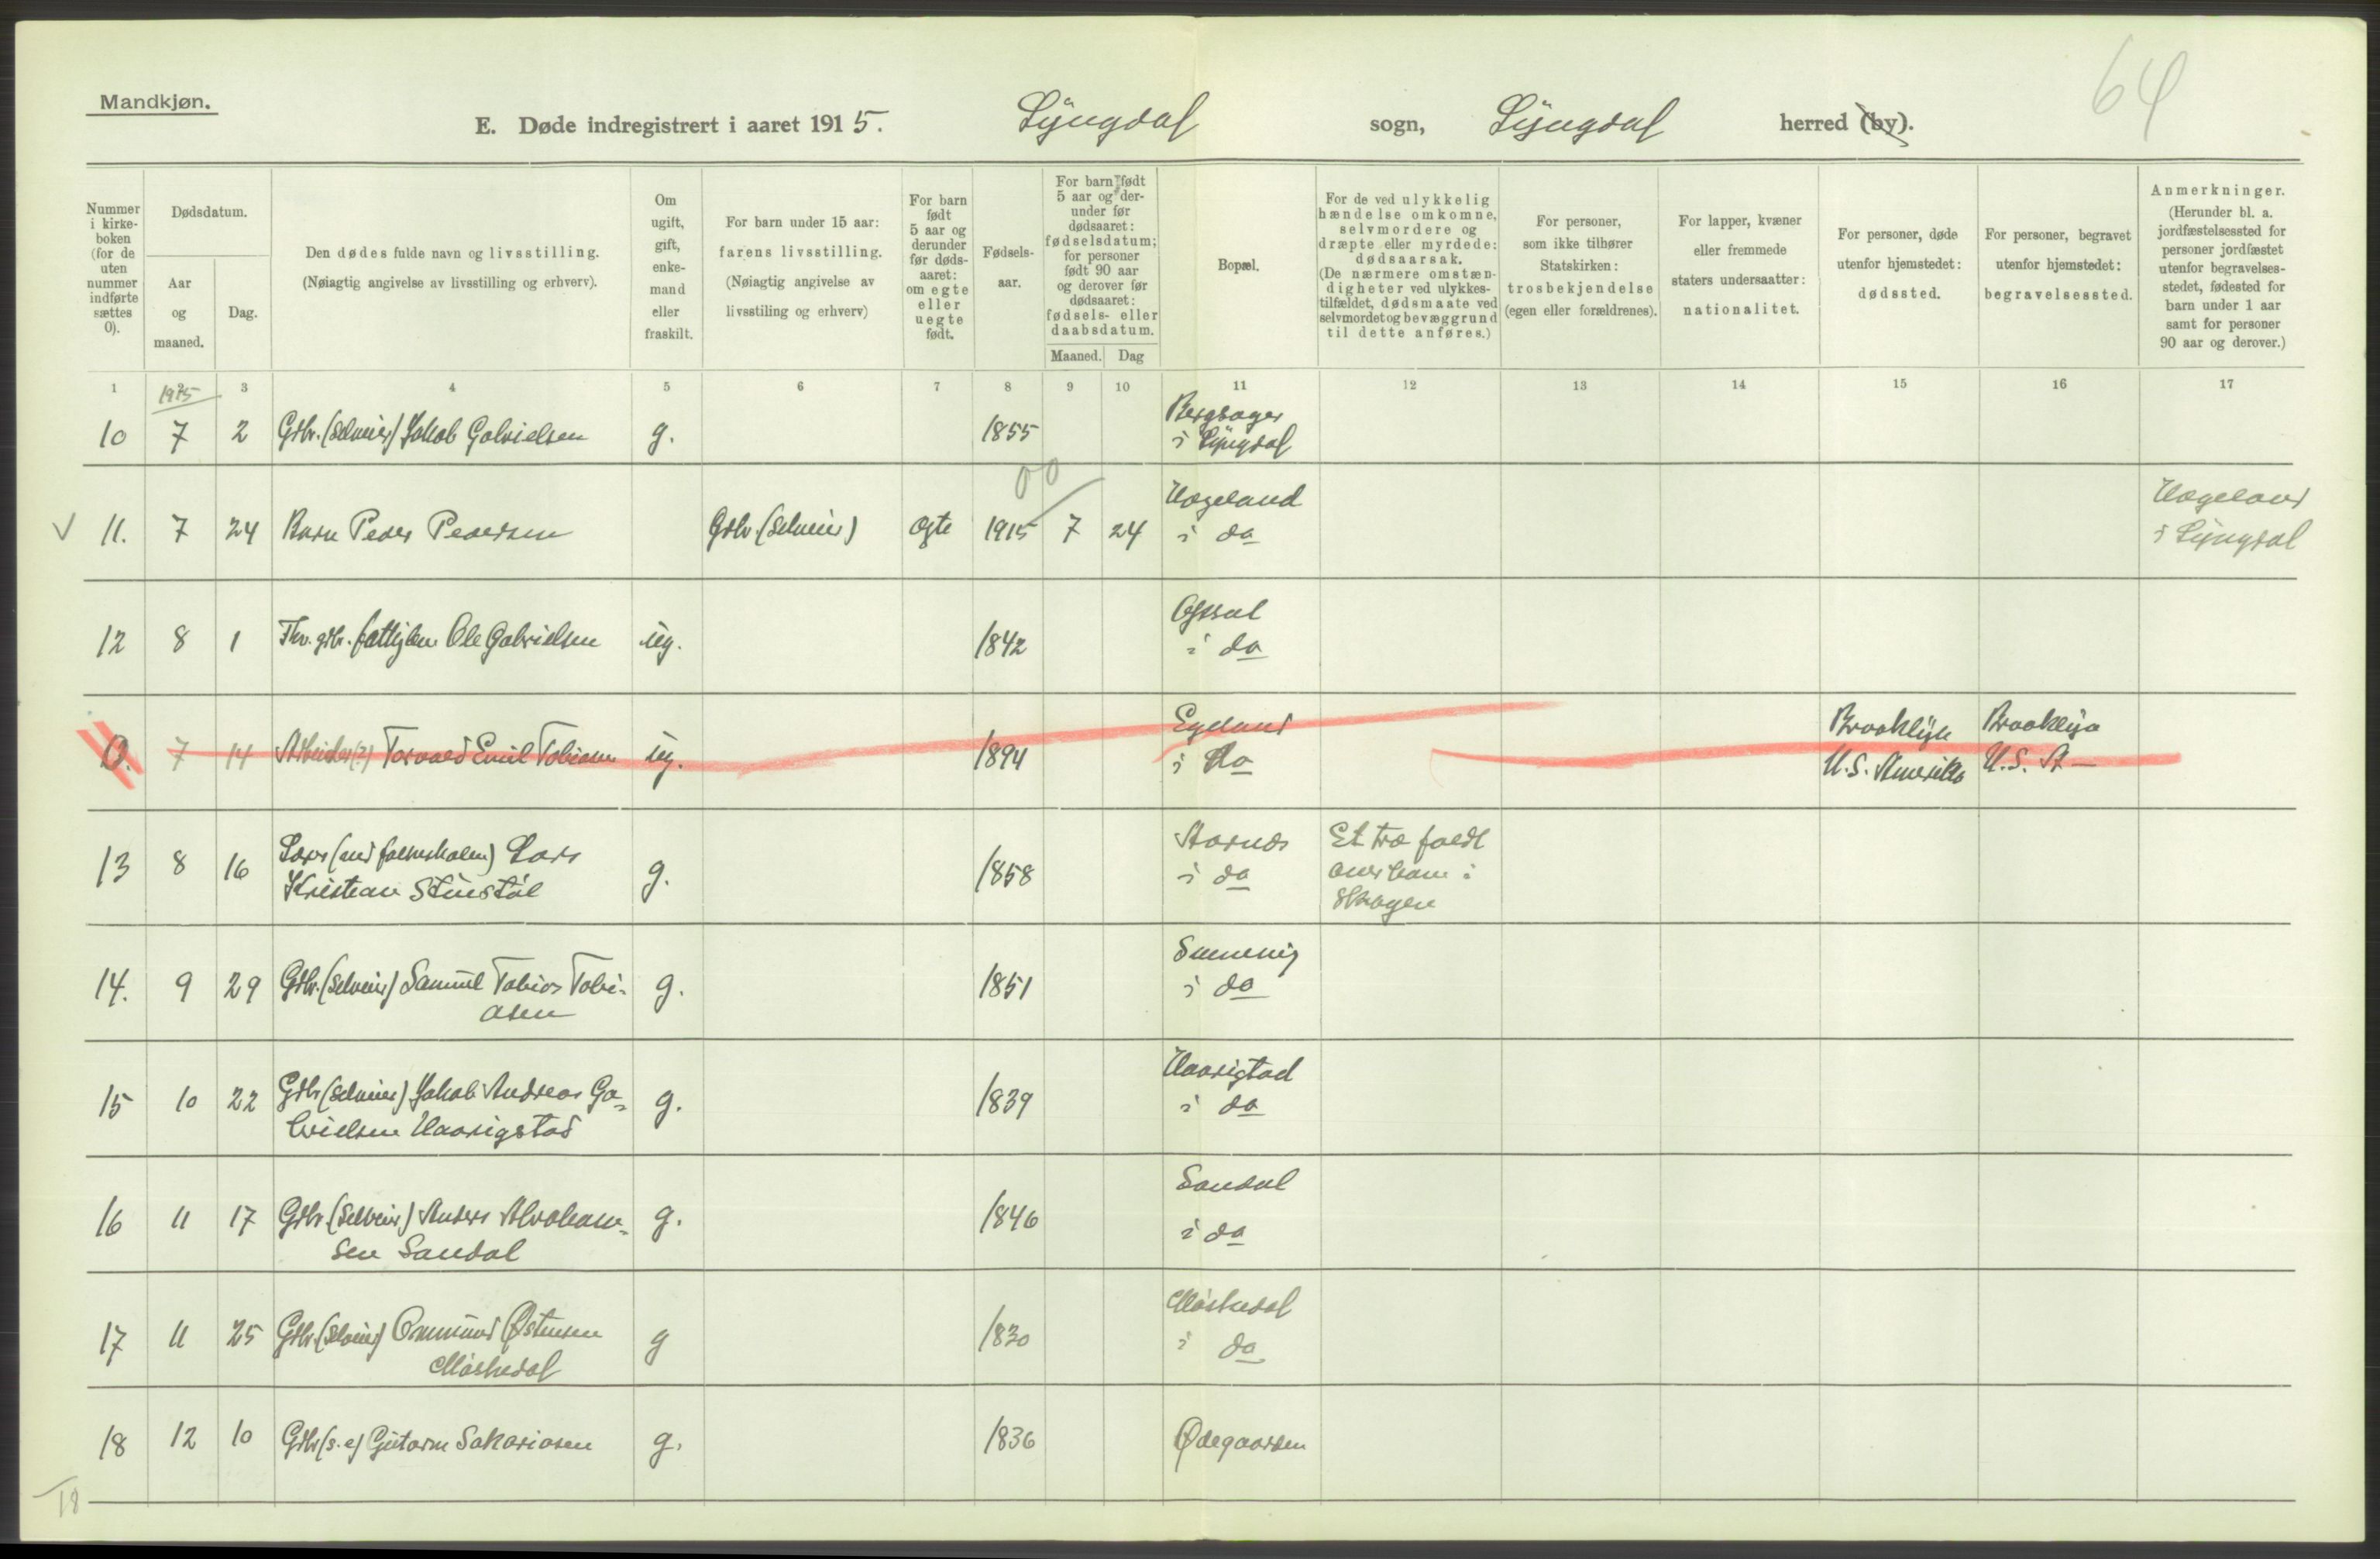 Mandkjøn.
64
E. Døde indregistrert i aaret 1915. Lyngdal sogn, Lyngdal herred (by).
Nummer i kirke-boken (for de uten nummer indførte sættes 0).
Dødsdatum.
Aar og maaned.
Dag.
Den dødes fulde navn og livsstilling.
(Nøiagtig angivelse av livsstilling og erhverv).
Om ugift, gift, enke-mand eller fraskilt.
For barn under 15 aar: farens livsstilling.
(Nøiagtig angivelse av livsstiling og erhverv)
For barn født 5 aar og derunder før døds-aaret: om egte eller uegte født.
Fødsels-aar.
For barn født 5 aar og der-under før dødsaaret: fødselsdatum; for personer født 90 aar og derover før dødsaaret: fødsels- eller daabsdatum.
Maaned. Dag
Bopæl.
For de ved ulykkelig hændelse omkomne, selvmordere og dræpte eller myrdede: dødsaarsak.
(De nærmere omstæn-digheter ved ulykkes-tilfældet, dødsmaate ved selvmordet og bevæggrund til dette anføres.)
For personer, som ikke tilhører Statskirken: trosbekjendelse (egen eller forældrenes).
For lapper, kvæner eller fremmede staters undersaatter: nationalitet.
For personer, døde utenfor hjemstedet: dødssted.
For personer, begravet utenfor hjemstedet: begravelsessted.
Anmerkninger.
(Herunder bl. a. jordfæstelsessted for personer jordfæstet utenfor begravelses-stedet, fødested for barn under 1 aar samt for personer 90 aar og derover.)
1 2 3 4 5 6 7 8 9 10 11 12 13 14 15 16 17
1915
10 7 2 Gbr. (selveier) Jakob Gabrielsen g. 1855 Bergsager i Lyngdal
00
11. 7 24 Barn Peder Pedersen Gbr (selveier) egte 1915 7 24 Hægeland i do Hægeland i Lyngdal
12 8 1 Fhv. gbr. fattiglem Ole Gabrielsen ug. 1842 i do
0. 7 14 Arbeider (?) Torvald Emil Tobiasen ug. 1894 Egeland i do Brooklyn U.S. Amerika Brooklyn U.S. A—
13 8 16 Lars Kristian g. 1858 i do Et træ faldt over ham i skogen
14. 9 29 Gbr. (selveier) Samuel Tobias Tobi-asen g. 1851 i do
15 10 22 Gbr (selveier) Jakob Andreas Ga-brielsen Haarigstad g. 1839 Haarigstad i do
16 11 17 Gbr (selveier) Anders Abraham-sen Sandal g. 1846 Sandal i do
17 11 25 Gbr. (selveier) Ommund Østensen Møskedal g 1830 Møskedal i do
18 12 10 Gbr (s.e) Gutorm Sakariasen g. 1836 Ødegaarden
18